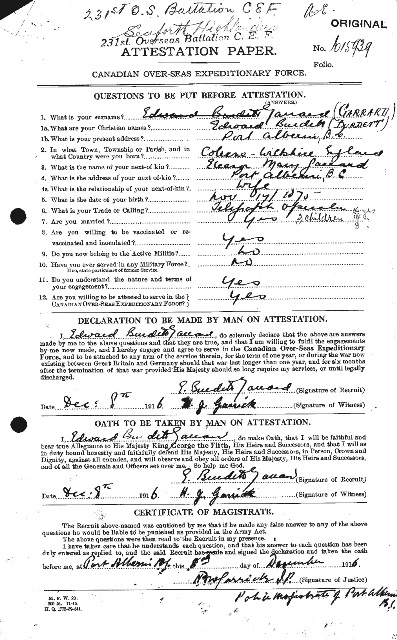 231st O.S. Battalion C.E.F
Seaforth Highlanders
231st. Overseas Battalion C. E. F.
ORIGINAL
ATTESTATION PAPER.
No. 1015939
Folio.
CANADIAN OVER-SEAS EXPEDITIONARY FORCE.
QUESTIONS TO BE PUT BEFORE ATTESTATION.
(ANSWERS)
1. What is your surname? Edward Burdett Garrard (GARRARD)
1a. What are your Christian names? Edward Burdett (BURDETT)
1b. What is your present address? Port Alberni, B.C.
2. In what Town, Township or Parish, and in
what Country were you born? Wiltshire England
3. What is the name of your next-of-kin? Eleanor Mary Garrard
4. What is the address of your next-of-kin? Port Alberni, B.C
4a. What is the relationship of your next-of-kin? Wife
5. What is the date of your birth? Nov 17/1875
6. What is your Trade or Calling? Telegraph Operator
7. Are you married? Yes 2 children
8. Are you willing to be vaccinated or re-
vaccinated and inoculated? Yes
9. Do you now belong to the Active Militia? No
10. Have you ever served in any Military Force? No
If so, state particulars of former Service.
11. Do you understand the nature and terms of
your engagement? Yes
12. Are you willing to be attested to serve in the
CANADIAN OVER-SEAS EXPEDITIONARY FORCE? Yes
DECLARATION TO BE MADE BY MAN ON ATTESTATION.
I, Edward Burdett Garrard, do solemnly declare that the above are answers
made by me to the above questions and that they are true, and that I am willing to fulfil the engagements
by me now made, and I hereby engage and agree to serve in the Canadian Over-Seas Expeditionary
Force, and to be attached to any arm of the service therein, for the term of one year, or during the war now
existing between Great Britain and Germany should that war last longer than one year, and for six months
after the termination of that war provided His Majesty should so long require my services, or until legally
discharged.
E. Burdett Garrard (Signature of Recruit)
Date Dec: 8th 1916 (Signature of Witness)
OATH TO BE TAKEN BY MAN ON ATTESTATION.
I, Edward Burdett Garrard, do make Oath, that I will be faithful and
bear true Allegiance to His Majesty King George the Fifth, His Heirs and Successors, and that I will as
in duty bound honestly and faithfully defend His Majesty, His Heirs and Successors, in Person, Crown and
Dignity, against all enemies, and will observe and obey all orders of His Majesty, His Heirs and Successors,
and of all the Generals and Officers set over me. So help me God.
E. Burdett Garrard (Signature of Recruit)
Date Dec: 8th 1916 (Signature of Witness)
CERTIFICATE OF MAGISTRATE.
The Recruit above-named was cautioned by me that if he made any false answer to any of the above
questions he would be liable to be punished as provided in the Army Act.
The above questions were then read to the Recruit in my presence.
I have taken care that he understands each question, and that his answer to each question has been
duly entered as replied to, and the said Recruit has made and signed the declaration and taken the oath
before me, at Port Alberni BC this 8th day of December 1916
J.P. (Signature of Justice)
Police Magistrate of Port Alberni
B.C.